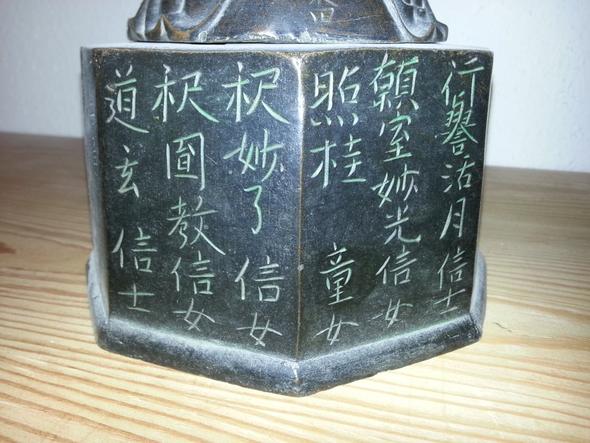 行譽活月信士
顗室妙光信女
照桂 童女
釈妙了 信女
釈圓教信女
道玄 信士